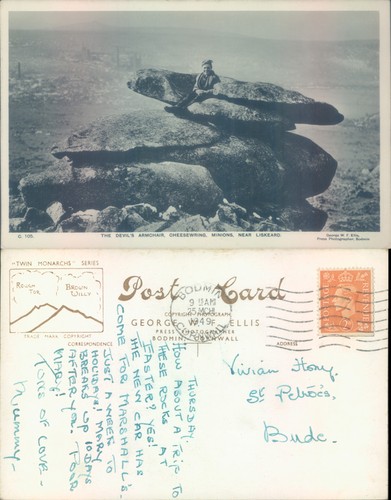 G 105.
THE DEVIL'S ARMCHAIR, CHEESEWRING, MINIONS, NEAR LISKEARD.
George W. F. Ellis,
Press Photographer Bodmin
"TWIN MONARCHS" SERIES
ROUGH TOR
BROWN WILLY
TRADE MARK COPYRIGHT
CORRESPONDENCE
Post Card
COPYRIGHT PHOTOGRAPH
GEORGE W. F. ELLIS
PRESS PHOTOGRAPHER
BODMIN, CORNWALL
ADDRESS
9 15 AM
1949
THURSDAY.
HOW ABOUT A TRIP TO
THESE ROCKS AT
EASTER? YES!
THE NEW CAR HAS
COME FOR MARSHALL'S.
JUST A WEEK TO
HOLIDAYS! MARY
BREAKS UP 10 DAYS
AFTER YOU. POOR
MARY!
TONS OF LOVE -
Mummy -
Vivian Hony,
St Petroc's,
Bude.